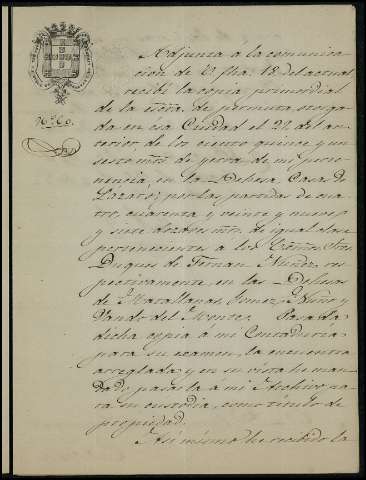 Adjunta a la comunica-
cion de V. fha. 18 del actual
recibí la copia primordial
de la escra. de permuta otorga-
da en esa Ciudad el 22 del an-
terior, de los ciento quince y un
sesto mrs. de yerba de mi perte-
nencia, en la Dehesa Casas de
Lázaro; por las partidas de cua-
tro, cuarenta y veinte y nueve,
y siete dozavos mrs. de igual clase
pertenecientes a los Exmos. Sres.
Duques de Fernan Nuñez, res-
pectivamente, en las Dehesas
de Matallanas, Gomez Nuño y
Vando del Montes. Pasada
dicha copia á mi Contaduría
para su exámen, la encuentra
arreglada; y en su vista he man-
dado pasarla á mi Archivo pa-
ra su custodia, como título de
propiedad.
Asi mismo he recibido la